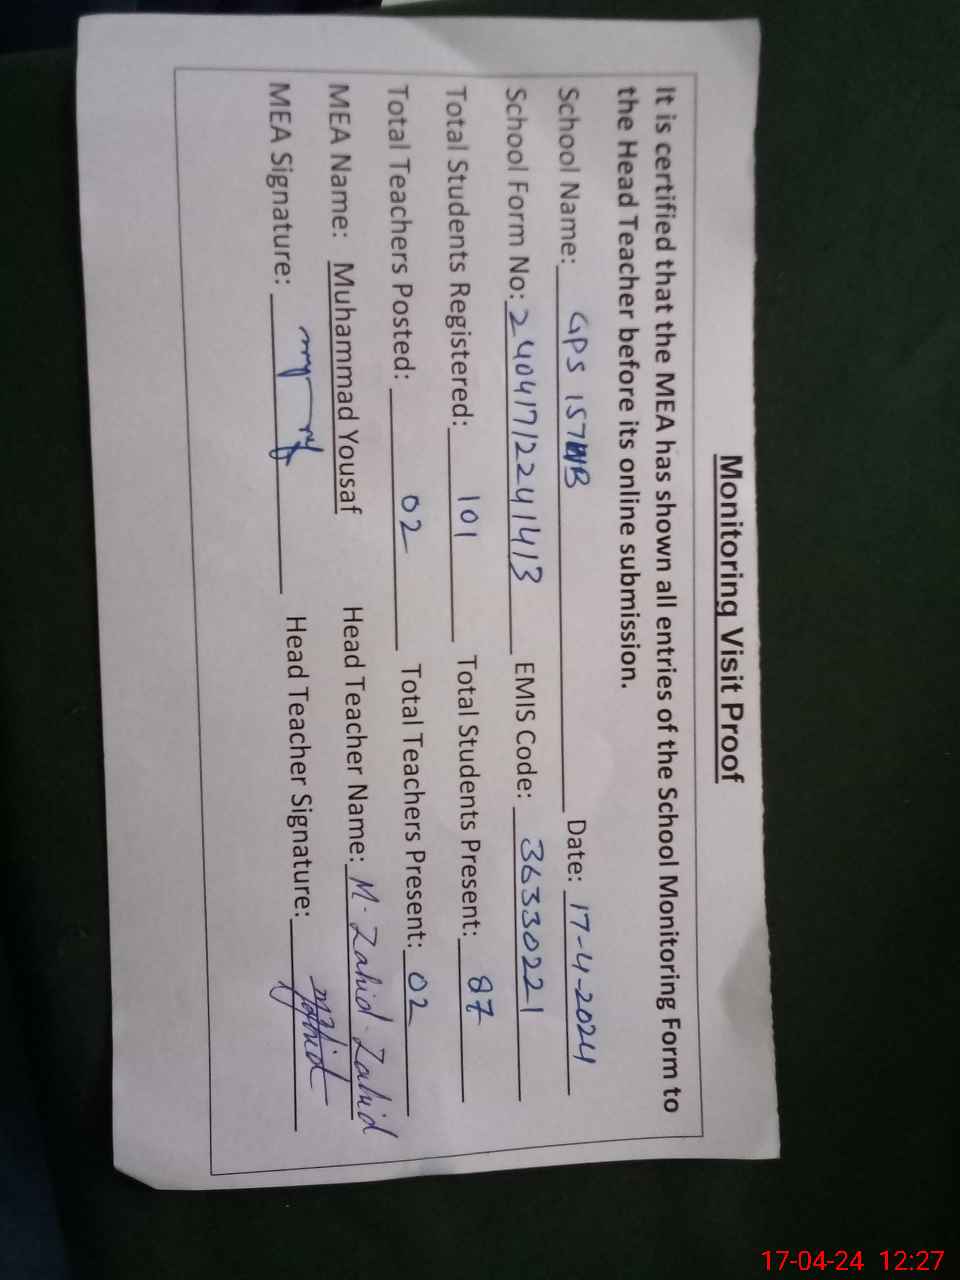 Monitoring Visit Proof
It is certified that the MEA has shown all entries of the School Monitoring Form to
the Head Teacher before its online submission.
School Name: GPS 157WB Date: 17-4-2024
School Form No: 24041712241413 EMIS Code: 36330221
Total Students Registered: 101 Total Students Present: 87
Total Teachers Posted: 02 Total Teachers Present: 02
MEA Name: Muhammad Yousaf Head Teacher Name: M. Zahid Zahid
MEA Signature: Head Teacher Signature:
17-04-24 12:27